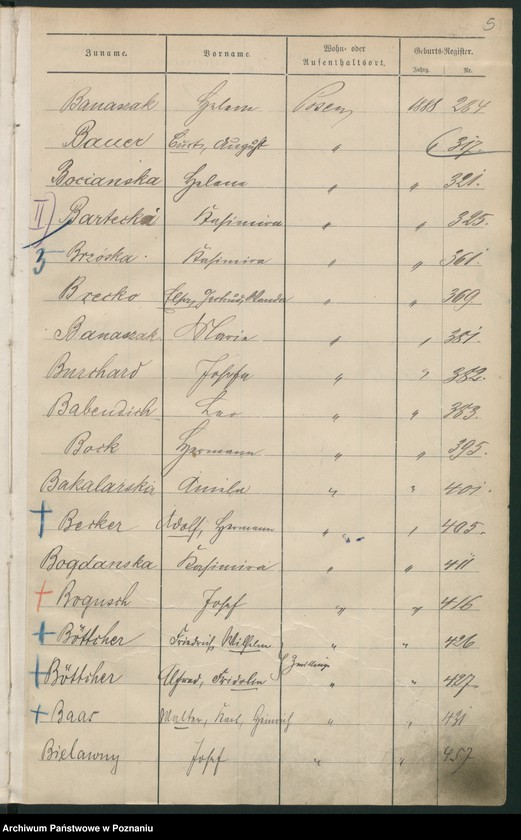 5
Zuname. Vorname. Wohn- oder Aufenthaltsort. Geburts-Register.
Jahrg. Nr.
Banaszak Helene Posen 1888 284.
Bauer Curt, August " 317.
Bocianska Helena " " 321.
II Bartecka Kasimira " " 325.
3 Brzóska. Kasimira " " 361.
Brecko Elsa, Gertrud, Wanda " " 369
Banaszak Marie " " 381.
Burchard Josefa " " 382.
Babendich Leo " " 383.
Bock Hermann " " 395.
Bakalarska Amila " " 401.
+ Becker Adolf, Hermann " " 405.
Bogdanska Kasimira " " 411
+ Bogusch Josef " " 416
+ Böttcher Friedrich, Wilhelm " " 426
Zwillinge
+ Böttcher Alfred, Fridolin " " 427.
+ Baar Walter, Karl, Heinrich " " 431
Bielawny Josef " " 457
Archiwum Państwowe w Poznaniu